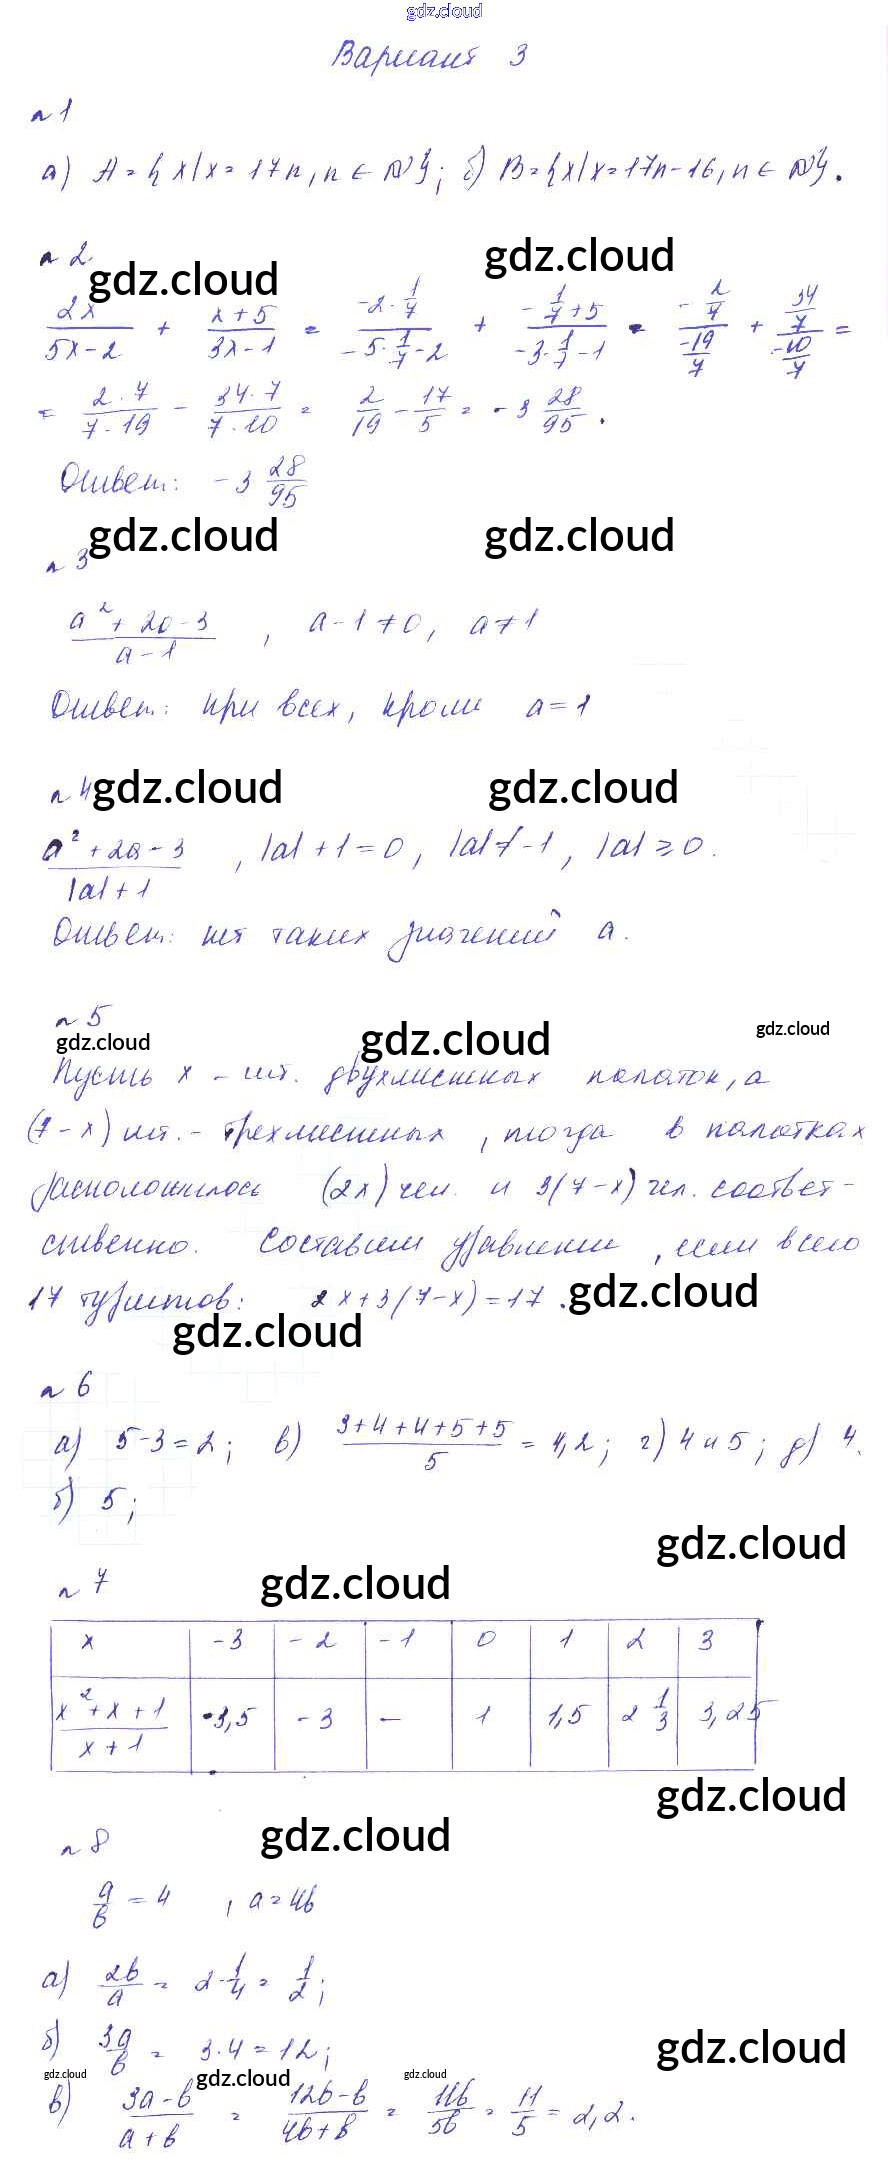 gdz.cloud
Вариант 3
№1
а) A = {x|x = 17n, n ∈ N}; б) B = {x|x = 17n-16, n ∈ N}.
№2
gdz.cloud gdz.cloud
2x/(5x-2) + (x+5)/(3x-1) = (-2·1/7)/(-5·1/7-2) + (-1/7+5)/(-3·1/7-1) = (-2/7)/(-19/7) + (34/7)/(-10/7) =
= (2·7)/(7·19) - (34·7)/(7·10) = 2/19 - 17/5 = -3 28/95.
Ответ: -3 28/95
gdz.cloud gdz.cloud
№3
(a²+2a-3)/(a-1), a-1≠0, a≠1
Ответ: при всех, кроме a=1
№4 gdz.cloud gdz.cloud
(a²+2a-3)/(|a|+1), |a|+1=0, |a|≠-1, |a|≥0.
Ответ: нет таких значений a.
№5
gdz.cloud gdz.cloud gdz.cloud
Пусть x - шт. двухместных палаток, а
(7-x) шт. - трехместных, тогда в палатках
расположилось (2x) чел. и 3(7-x) чел. соответ-
ственно. Составим уравнение, если всего
17 туристов: 2x+3(7-x)=17. gdz.cloud
gdz.cloud
№6
а) 5-3=2; в) (3+4+4+5+5)/5 = 4,2; г) 4 и 5; д) 4.
б) 5;
gdz.cloud
№7 gdz.cloud
x -3 -2 -1 0 1 2 3
(x²+x+1)/(x+1) -3,5 -3 – 1 1,5 2 1/3 3,25
gdz.cloud
№8 gdz.cloud
a/b = 4, a=4b
а) 2b/a = 2·1/4 = 1/2;
б) 3a/b = 3·4=12; gdz.cloud
gdz.cloud gdz.cloud gdz.cloud
в) (3a-b)/(a+b) = (12b-b)/(4b+b) = 11b/5b = 11/5 = 2,2.